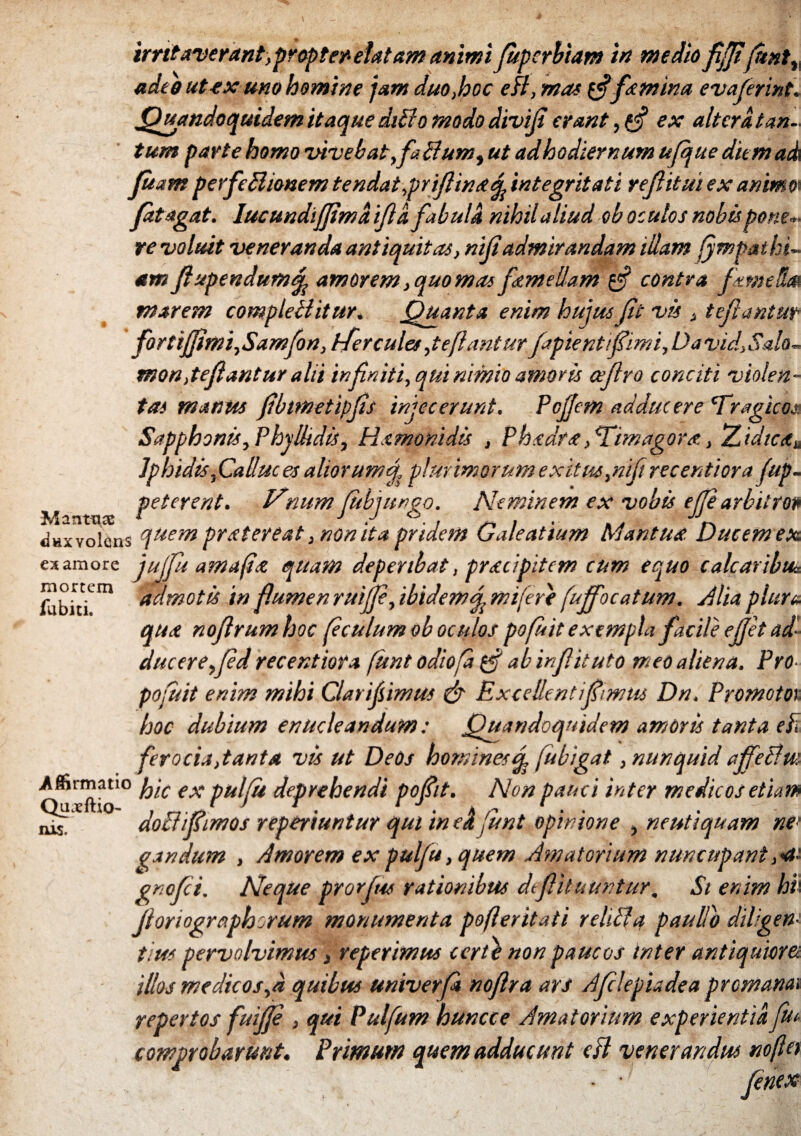 irritaverant, propter elatam animi superbiam in medio fissi sunt,
adeo ut ex uno homine jam duo, hoc est, mas & fæmina evaserint.
Quandoquidem itaque dicto modo divisi erant, & ex alterâ tan-
tum parte homo vivebat, factum, ut ad hodiernum usque diem ad
suam perfectionem tendat, pristinæq́; integritati restitui ex animo
satagat. Iucundissimâ istâ fabulâ nihil aliud ob oculos nobis pone-
re voluit veneranda antiquitas, nisi admirandam illam sympathi-
am stupendumq́; amorem, quo mas fæmellam & contra fæmella
marem complectitur. Quanta enim hujus sit vis, testantur
fortissimi, Samson, Hercules, testantur sapientissimi, David, Salo-
mon, testantur alii infiniti, qui nimio amoris œstro conciti violen-
tas manus sibimetipsis injecerunt. Possem adducere Tragicos
Sapphonis, Phyllidis, Hæmonidis, Phædræ, Timagoræ, Zidicæ,
Iphidis, Calluces aliorumq́; plurimorum exitus, nisi recentiora sup-
peterent. Vnum subjungo. Neminem ex vobis esse arbitror
Mantuæ
dux volens
ex amore
mortem
subiti.
quem prætereat, non ita pridem Galeatium Mantuæ Ducem ex
jussu amasiæ quam deperibat, præcipitem cum equo calcaribus
admotis in flumen ruisse, ibidemq́; misere suffocatum. Alia plura
quæ nostrum hoc seculum ob oculos posuit exempla facile esset ad-
ducere, sed recentiora sunt odiosa & ab instituto meo aliena. Pro-
posuit enim mihi Clarissimus & Excellentissimus Dn. Promotor
hoc dubium enucleandum: Quandoquidem amoris tanta est
ferocia, tanta vis ut Deos hominesq́; subigat, nunquid affectus
Affirmatio
Quæstio-
nis.
hic ex pulsu deprehendi possit. Non pauci inter medicos etiam
doctissimos reperiuntur qui in eâ sunt opinione, neutiquam ne-
gandum, Amorem ex pulsu, quem Amatorium nuncupant, a-
gnosci. Neque prorsus rationibus destituuntur. Si enim hi-
storiographorum monumenta posteritati relicta paullo diligen-
tius pervolvimus, reperimus certè non paucos inter antiquiores
illos medicos, à quibus universa nostra ars Asclepiadea promanat
repertos fuisse, qui Pulsum huncce Amatorium experientiâ suâ
comprobarunt. Primum quem adducunt est venerandus noster
senex